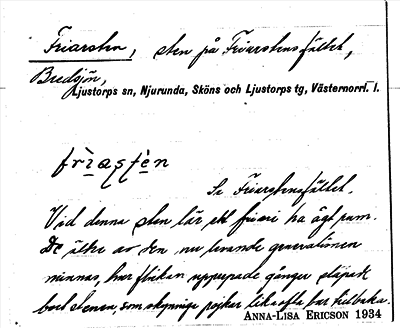 Friarsten, sten på Friarstensfältet,
Bredsjön,
Ljustorps sn, Njurunda, Sköns och Ljustorps tg, Västernorrl. l.
friasten
Se Friarstensfältet.
Vid denna sten lär ett frieri ha ägt rum.
De äldre av den nu levande generationen
minnas, hur flickan upprepade gånger släpade
bort stenen, som okynniga pojkar lika ofta bar tillbaka.
ANNA-LISA ERICSON 1934